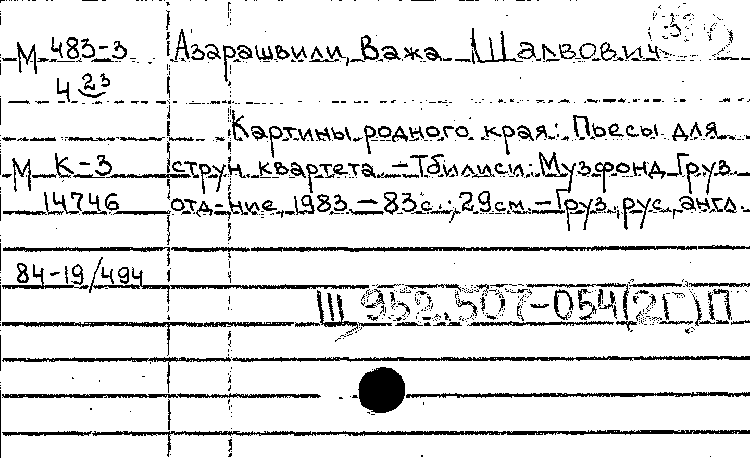 М 483-3 Азарашвили, Важа Шалвович
4 23
Картины родного края: Пьесы для
М К-3 струн. квартета. – Тбилиси: Музфонд. Груз.
14746 отд-ние, 1983. – 83 с.; 29 см. – Груз., рус., англ.
84-19/494
III 952.507-054(2Г)П